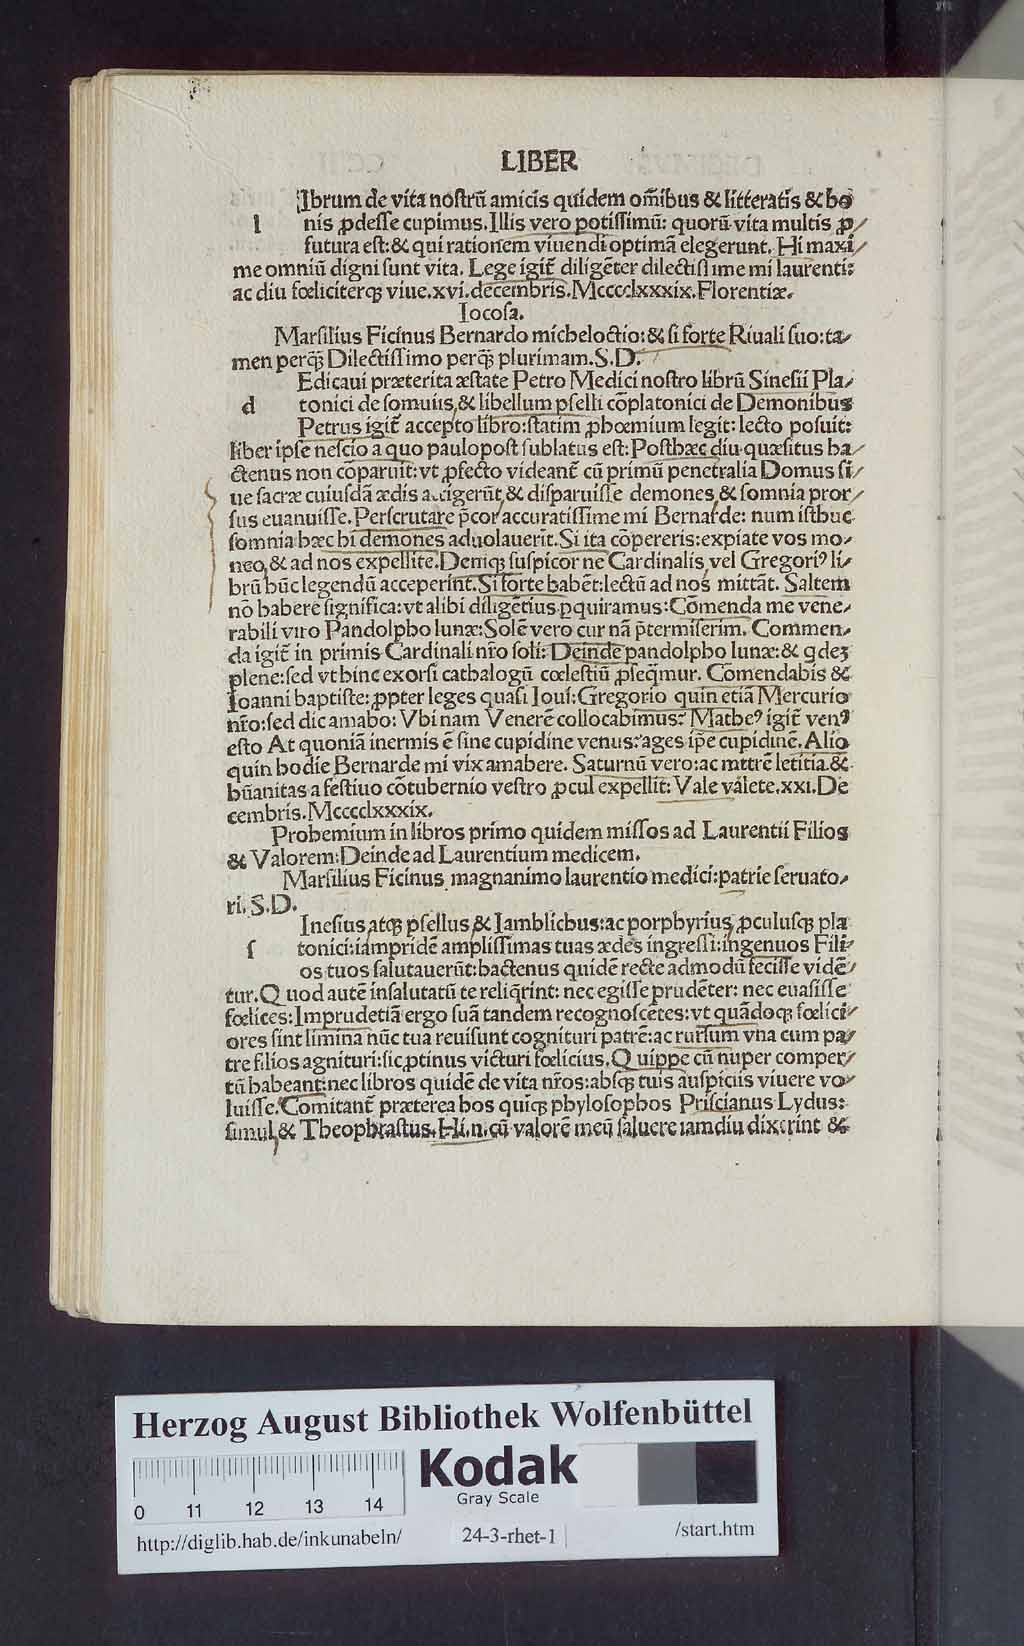 LIBER
Ibrum de vita nostrũ amicis quidem om̃ibus & litteratis & bo
l nis ꝓdesse cupimus. Illis vero potissimũ: quorũ vita multis ꝓ/
futura est: & qui rationem viuendi optimã elegerunt. Hi maxi/
me omniũ digni sunt vita. Lege igit̃ diligẽter dilectissime mi laurenti:
ac diu fœliciterqꝫ viue. xvi. decembris. Mcccclxxxix. Florentiæ.
Iocosa.
Marsilius Ficinus Bernardo micheloctio: & si forte Riuali suo: ta/
men perqꝫ̃ Dilectissimo perqꝫ̃ plurimam. S. D.
Edicaui præterita æstate Petro Medici nostro librũ Sinesii Pla/
d tonici de somuiis, & libellum pselli cõplatonici de Demonibus
Petrus igit̃ accepto libro: statim ꝓhœmium legit: lecto posuit:
liber ipse nescio a quo paulopost sublatus est: Posthæc diu quæsitus ha/
ctenus non cõparuit: vt ꝓfecto videant̃ cũ primũ penetralia Domus si/
ue sacræ cuiusdã ædis attigerũt, & disparuisse demones, & somnia pror/
sus euanuisse. Perscrutare p̃cor accuratissime mi Bernarde: num isthuc
somnia hæc hi demones aduolauerit. Si ita cõpereris: expiate vos mo/
neo, & ad nos expellite. Deniqꝫ suspicor ne Cardinalis, vel Gregoriꝰ li/
brũ hũc legendũ acceperint. Si forte habẽt: lectũ ad nos mittãt. Saltem
nõ habere significa: vt alibi diligẽtius ꝑquiramus: Cõmenda me vene/
rabili viro Pandolpho lunæ: Solẽ vero cur nã p̃termiserim. Commen/
da igit̃ in primis Cardinali nr̃o soli: Deinde pandolpho lunæ: & qdeꝫ
plene: sed vt hinc exorsi cathalogũ cœlestiũ ꝓseq̃mur. Cõmendabis &
Ioanni baptiste: ꝓpter leges quasi Ioui: Gregorio quin etiã Mercurio
nr̃o: sed dic amabo: Vbi nam Venerẽ collocabimus: Matheꝰ igit̃ venꝰ
esto At quoniã inermis ẽ sine cupidine venus: ages ip̃e cupidinẽ. Alio
quin hodie Bernarde mi vix amabere. Saturnũ vero: ac mttrẽ letitia. &
hũanitas a festiuo cõtubernio vestro ꝓcul expellit: Vale válete. xxi. De
cembris. Mcccclxxxix.
Prohemium in libros primo quidem missos ad Laurentii Filios
& Valorem: Deinde ad Laurentium medicem.
Marsilius Ficinus magnanimo laurentio medici: patrie seruato/
ri. S. D.
Inesius atqꝫ psellus, & Iamblichus: ac porphyrius, ꝓculusqꝫ pla
s tonici: iampridẽ amplissimas tuas ædes ingressi: ingenuos Fili/
os tuos salutauerũt: hactenus quidẽ recte admodũ fecisse vidẽ/
tur. Quod autẽ insalutatũ te reliq̃rint: nec egisse prudẽter: nec euasisse
fœlices: Imprudetiã ergo suã tandem recognoscẽtes: vt quãdoqꝫ fœlici/
ores sint limina nũc tua reuisunt cognituri patrẽ: ac rursum vna cum pa/
tre filios agnituri: sic ꝓtinus victuri fœlicius. Quippe cũ nuper comper/
tũ habeant: nec libros quidẽ de vita nr̃os: absqꝫ tuis auspiciis viuere vo/
luisse. Comitant̃ præterea hos quiqꝫ phylosophos Priscianus Lydus:
simul, & Theophrastus. Hi. n. cũ valorẽ meũ saluere iamdiu dixerint &
Herzog August Bibliothek Wolfenbüttel
0 11 12 13 14
Kodak
Gray Scale
http://diglib.hab.de/inkunabeln/ 24-3-rhet-1 /start.htm